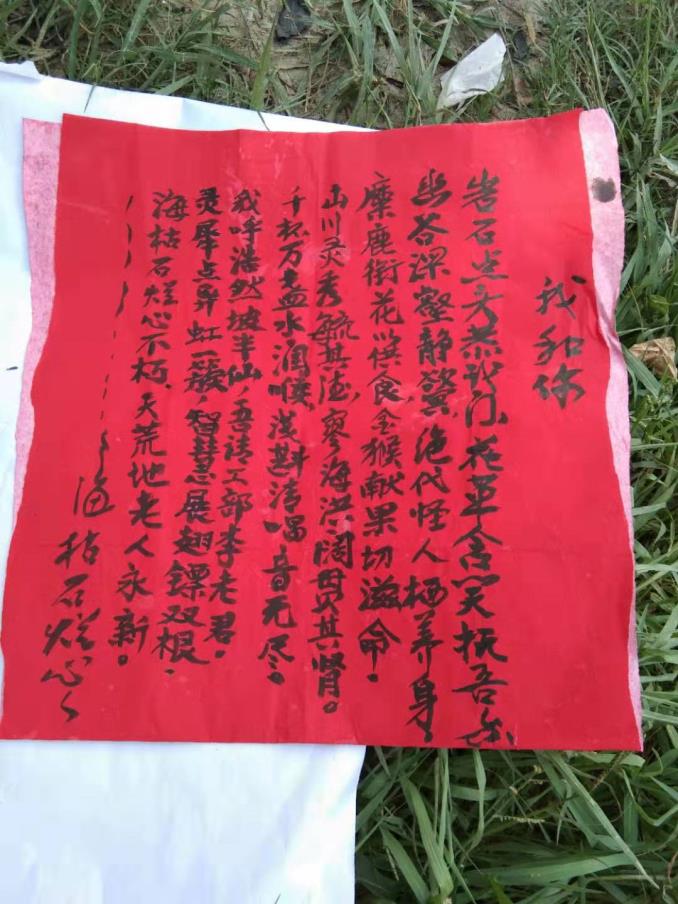 我和你
岩石点头恭我门,花草含笑抚吾乐
幽谷深壑静驚,绝代怪人栖养身,
麋鹿衔花以供食,金猴献果切滋命,
山川灵秀毓其德,寥海洪阔贯其肾。
千杯万盏水润喉,浅斟清唱音无尽。
我呼浩然坡半仙,吾请工部李老君,
灵犀点昇虹一簇,智慧展翅镖双根,
海枯石烂心不朽,天荒地老人永新。
海枯石烂心